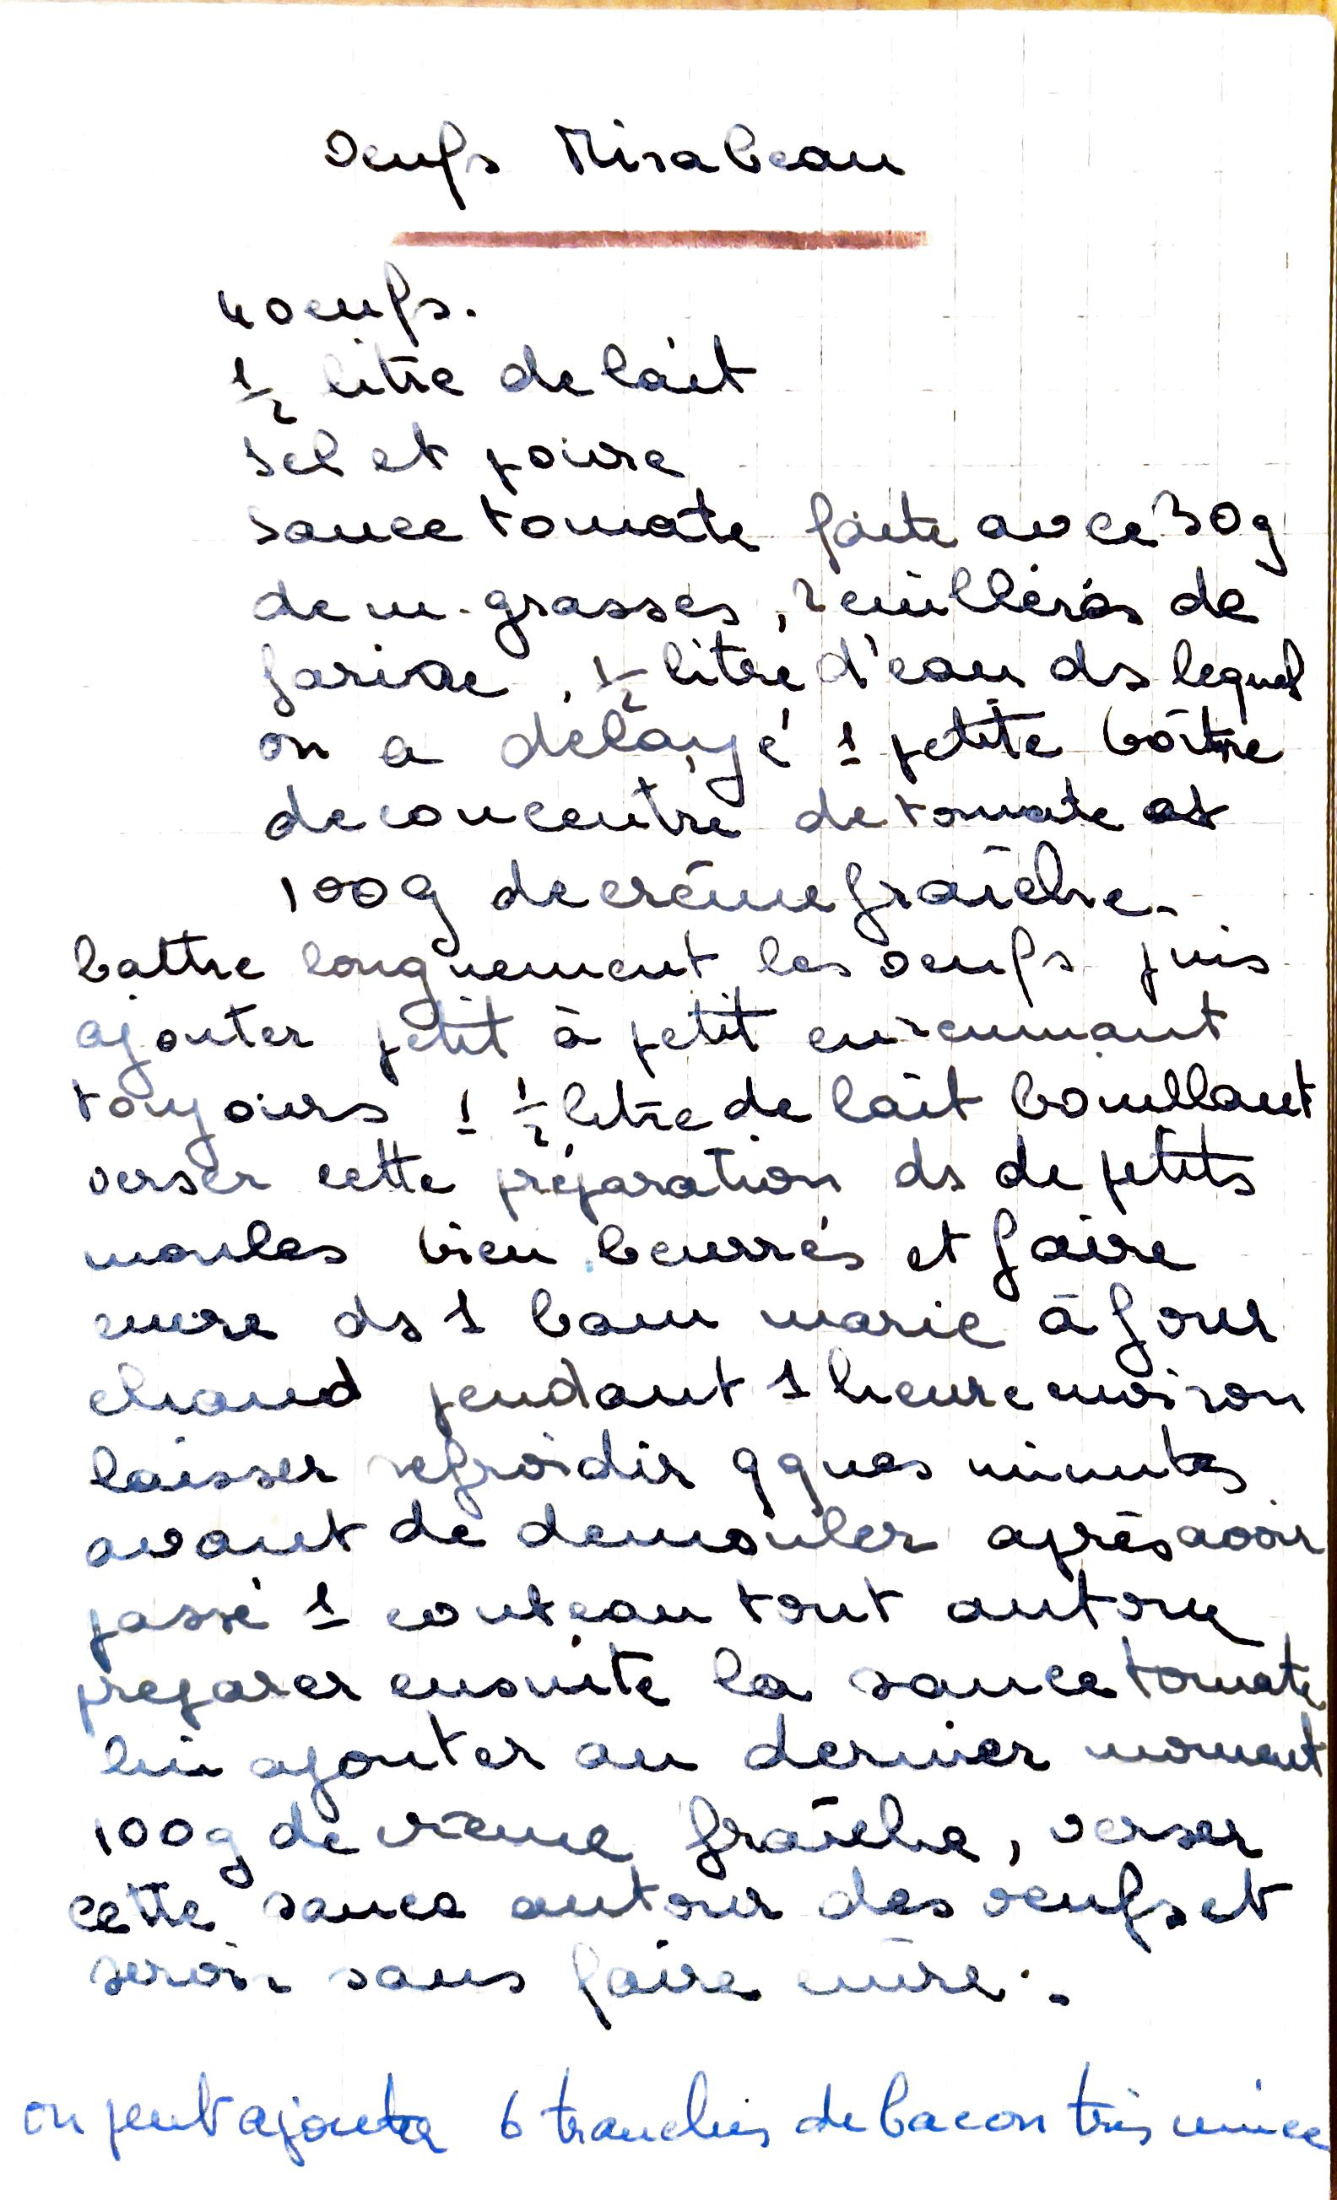 Oeufs Mirabeau
4 oeufs.
1/2 litre de lait
sel et poivre
sauce tomate faite avec 30g
de m. grasses, 2 cuillérés de
farine, 1/2 litre d'eau ds lequel
on a délayé 1 petite boîte
de concentré de tomate et
100g de crème fraîche.
battre longuement les oeufs puis
ajouter petit à petit en remuant
toujours 1 1/2 litre de lait bouillant
verser cette préparation ds de petits
moules bien beurrés et faire
cuire ds 1 bain marie à four
chaud pendant 1 heure environ
laisser refroidir qques minutes
avant de demouler après avoir
passé 1 couteau tout autour
preparer ensuite la sauce tomate
lui ajouter au dernier moment
100g de crème fraîche, verser
cette sauce autour des oeufs et
servir sans faire cuire.
on peut ajouter 6 tranches de bacon très mince